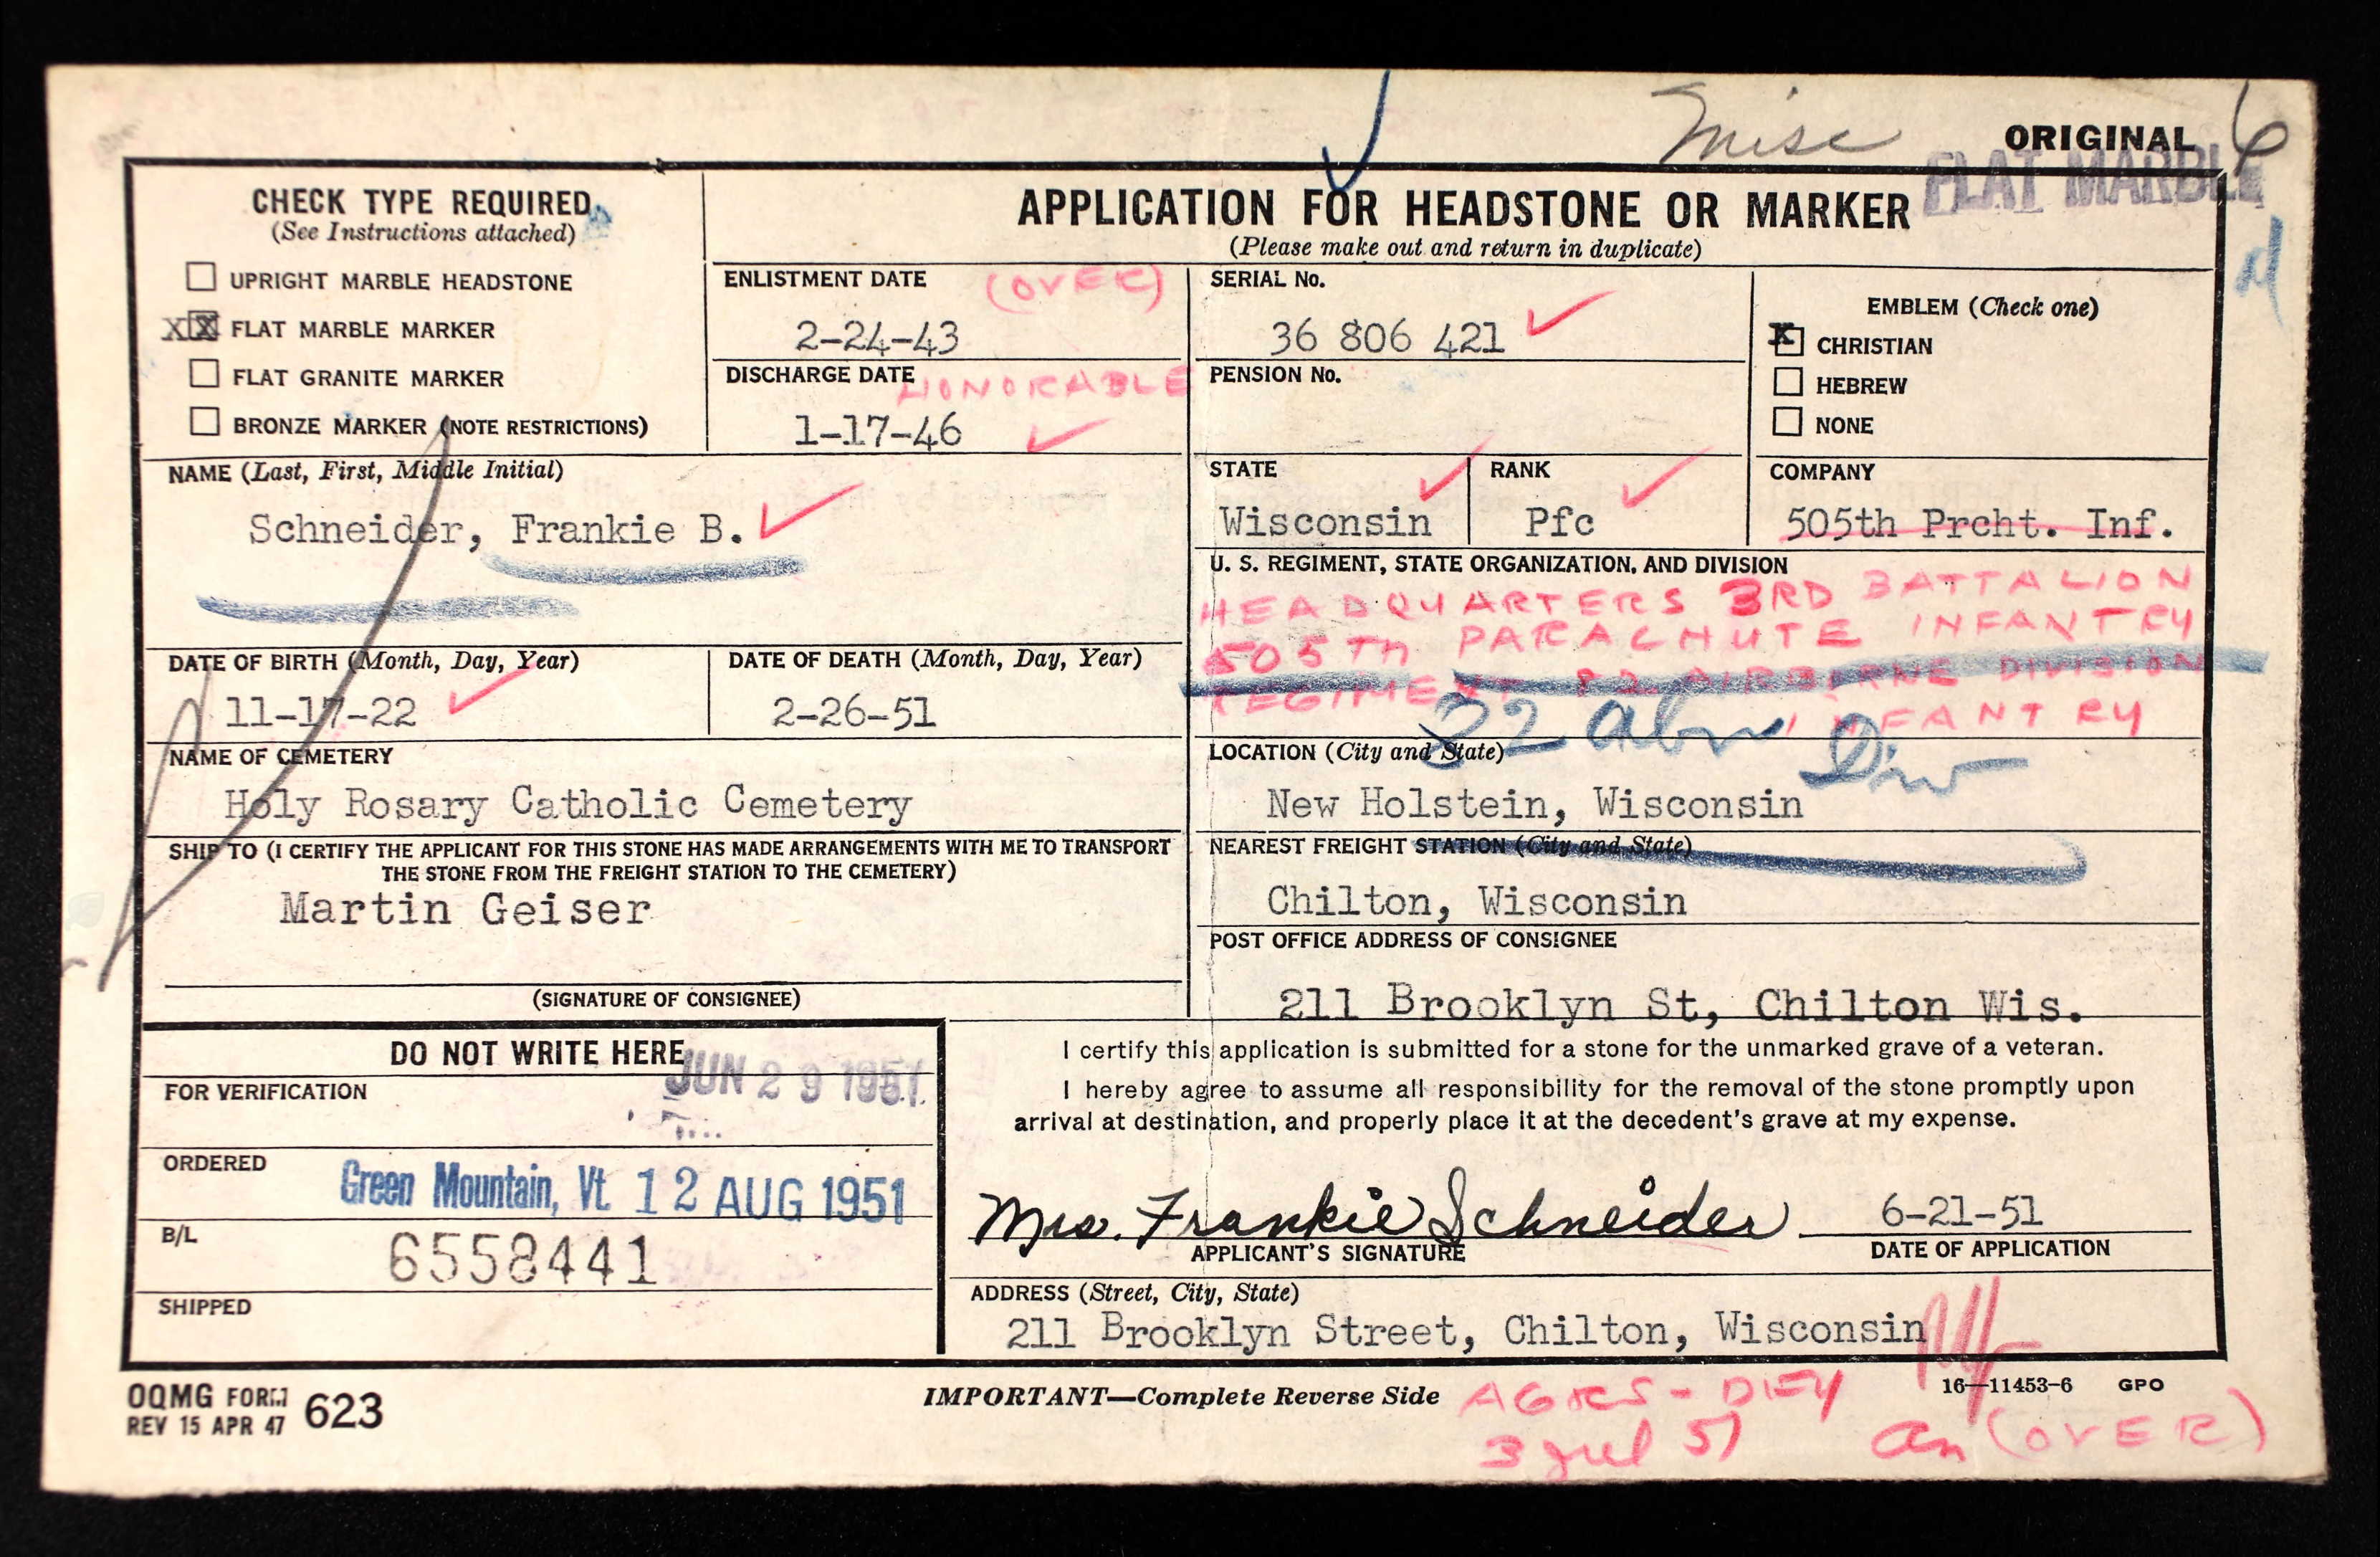 Misc ORIGINAL 6
FLAT MARBLE
CHECK TYPE REQUIRED
(See Instructions attached)
UPRIGHT MARBLE HEADSTONE
XX FLAT MARBLE MARKER
FLAT GRANITE MARKER
BRONZE MARKER (NOTE RESTRICTIONS)
APPLICATION FOR HEADSTONE OR MARKER
(Please make out and return in duplicate)
ENLISTMENT DATE (OVER)
2-24-43
DISCHARGE DATE HONORABLE
1-17-46
SERIAL No.
36 806 421
PENSION No.
EMBLEM (Check one)
X CHRISTIAN
HEBREW
NONE
NAME (Last, First, Middle Initial)
Schneider, Frankie B.
STATE
Wisconsin
RANK
Pfc
COMPANY
505th Prcht. Inf.
U. S. REGIMENT, STATE ORGANIZATION, AND DIVISION
HEADQUARTERS 3RD BATTALION
505TH PARACHUTE INFANTRY
REGIMENT 82 AIRBORNE DIVISION
INFANTRY
82 Abn Div
DATE OF BIRTH (Month, Day, Year)
11-17-22
DATE OF DEATH (Month, Day, Year)
2-26-51
NAME OF CEMETERY
Holy Rosary Catholic Cemetery
LOCATION (City and State)
New Holstein, Wisconsin
SHIP TO (I CERTIFY THE APPLICANT FOR THIS STONE HAS MADE ARRANGEMENTS WITH ME TO TRANSPORT
THE STONE FROM THE FREIGHT STATION TO THE CEMETERY)
Martin Geiser
(SIGNATURE OF CONSIGNEE)
NEAREST FREIGHT STATION (City and State)
Chilton, Wisconsin
POST OFFICE ADDRESS OF CONSIGNEE
211 Brooklyn St, Chilton Wis.
DO NOT WRITE HERE
JUN 29 1951
FOR VERIFICATION
ORDERED
Green Mountain, Vt 12 AUG 1951
B/L
6558441
SHIPPED
I certify this application is submitted for a stone for the unmarked grave of a veteran.
I hereby agree to assume all responsibility for the removal of the stone promptly upon
arrival at destination, and properly place it at the decedent's grave at my expense.
Mrs. Frankie Schneider 6-21-51
APPLICANT'S SIGNATURE DATE OF APPLICATION
ADDRESS (Street, City, State)
211 Brooklyn Street, Chilton, Wisconsin
OQMG FORM 623
REV 15 APR 47
IMPORTANT—Complete Reverse Side
16—11453-6 GPO
3 Jul 51
(OVER)